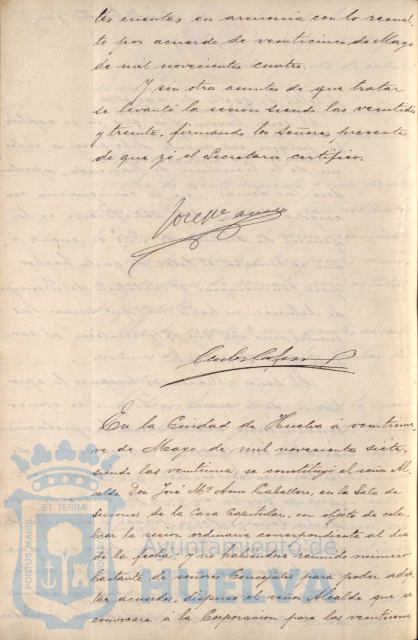 tes cuentas en armonia con lo resuel-
to por acuerdo de veinticinco de Mayo
de mil novecientos cuatro.
Y sin otros asuntos de que tratar
se levantó la sesión siendo las veintidos
y treinta, firmando los Señores presentes
de que yó el Secretario certifico.
En la Ciudad de Huelva á veintinue-
ve de Mayo de mil novecientos siete,
siendo las veintiuna, se constituyó el señor Al-
calde Don José Mª Amo Caballero, en la Sala de
sesiones de la Casa Capitular, con objeto de cele-
brar la sesión ordinaria correspondiente al dia
de la fecha, y no habiendo reunido número
bastante de señores Concejales para poder adop-
tar acuerdos, dispuso el señor Alcalde que se
convocara á la Corporacion para las veintiuna
PORTUS MARIS ET TERRAE
Ayuntamiento de
HUELVA